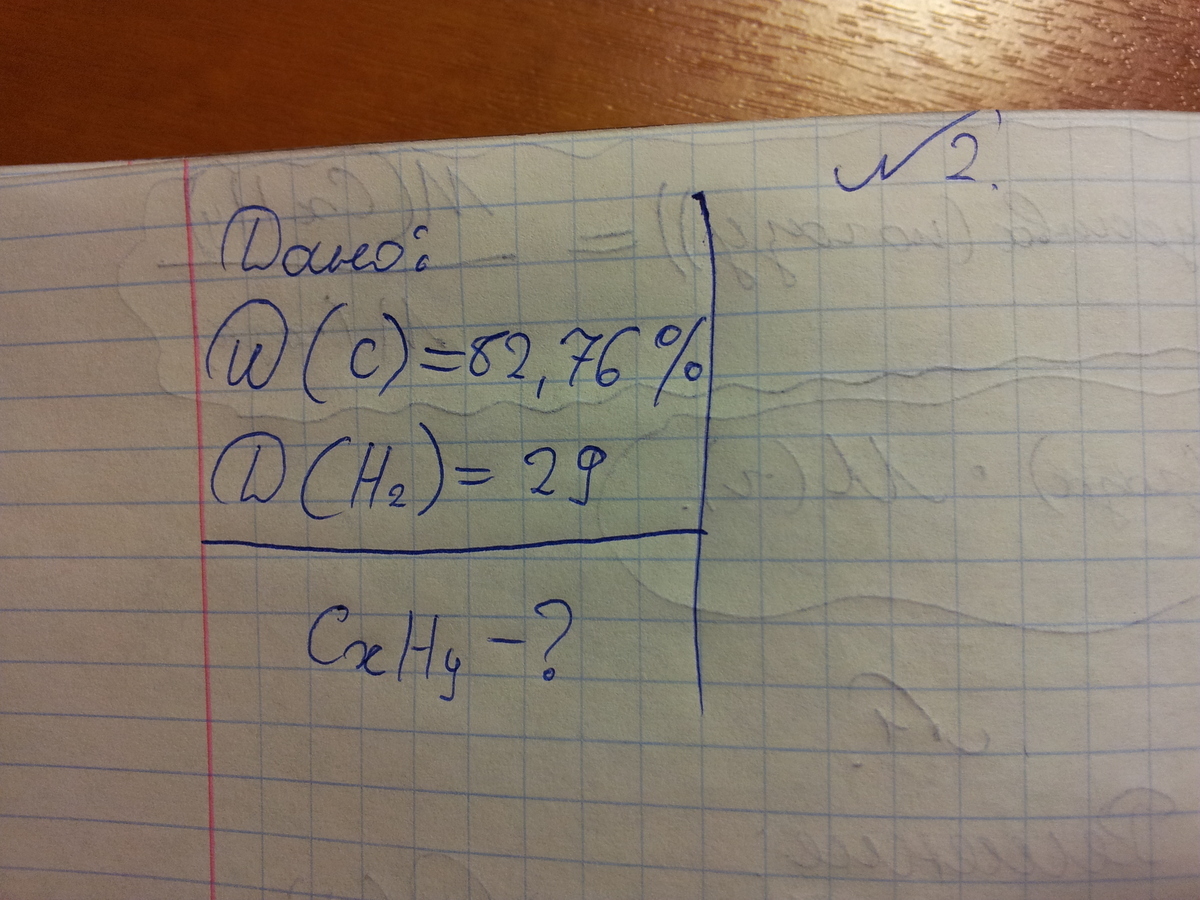 № 2.
Дано:
W(C)=82,76%
D(H₂)= 29
CxHy -?